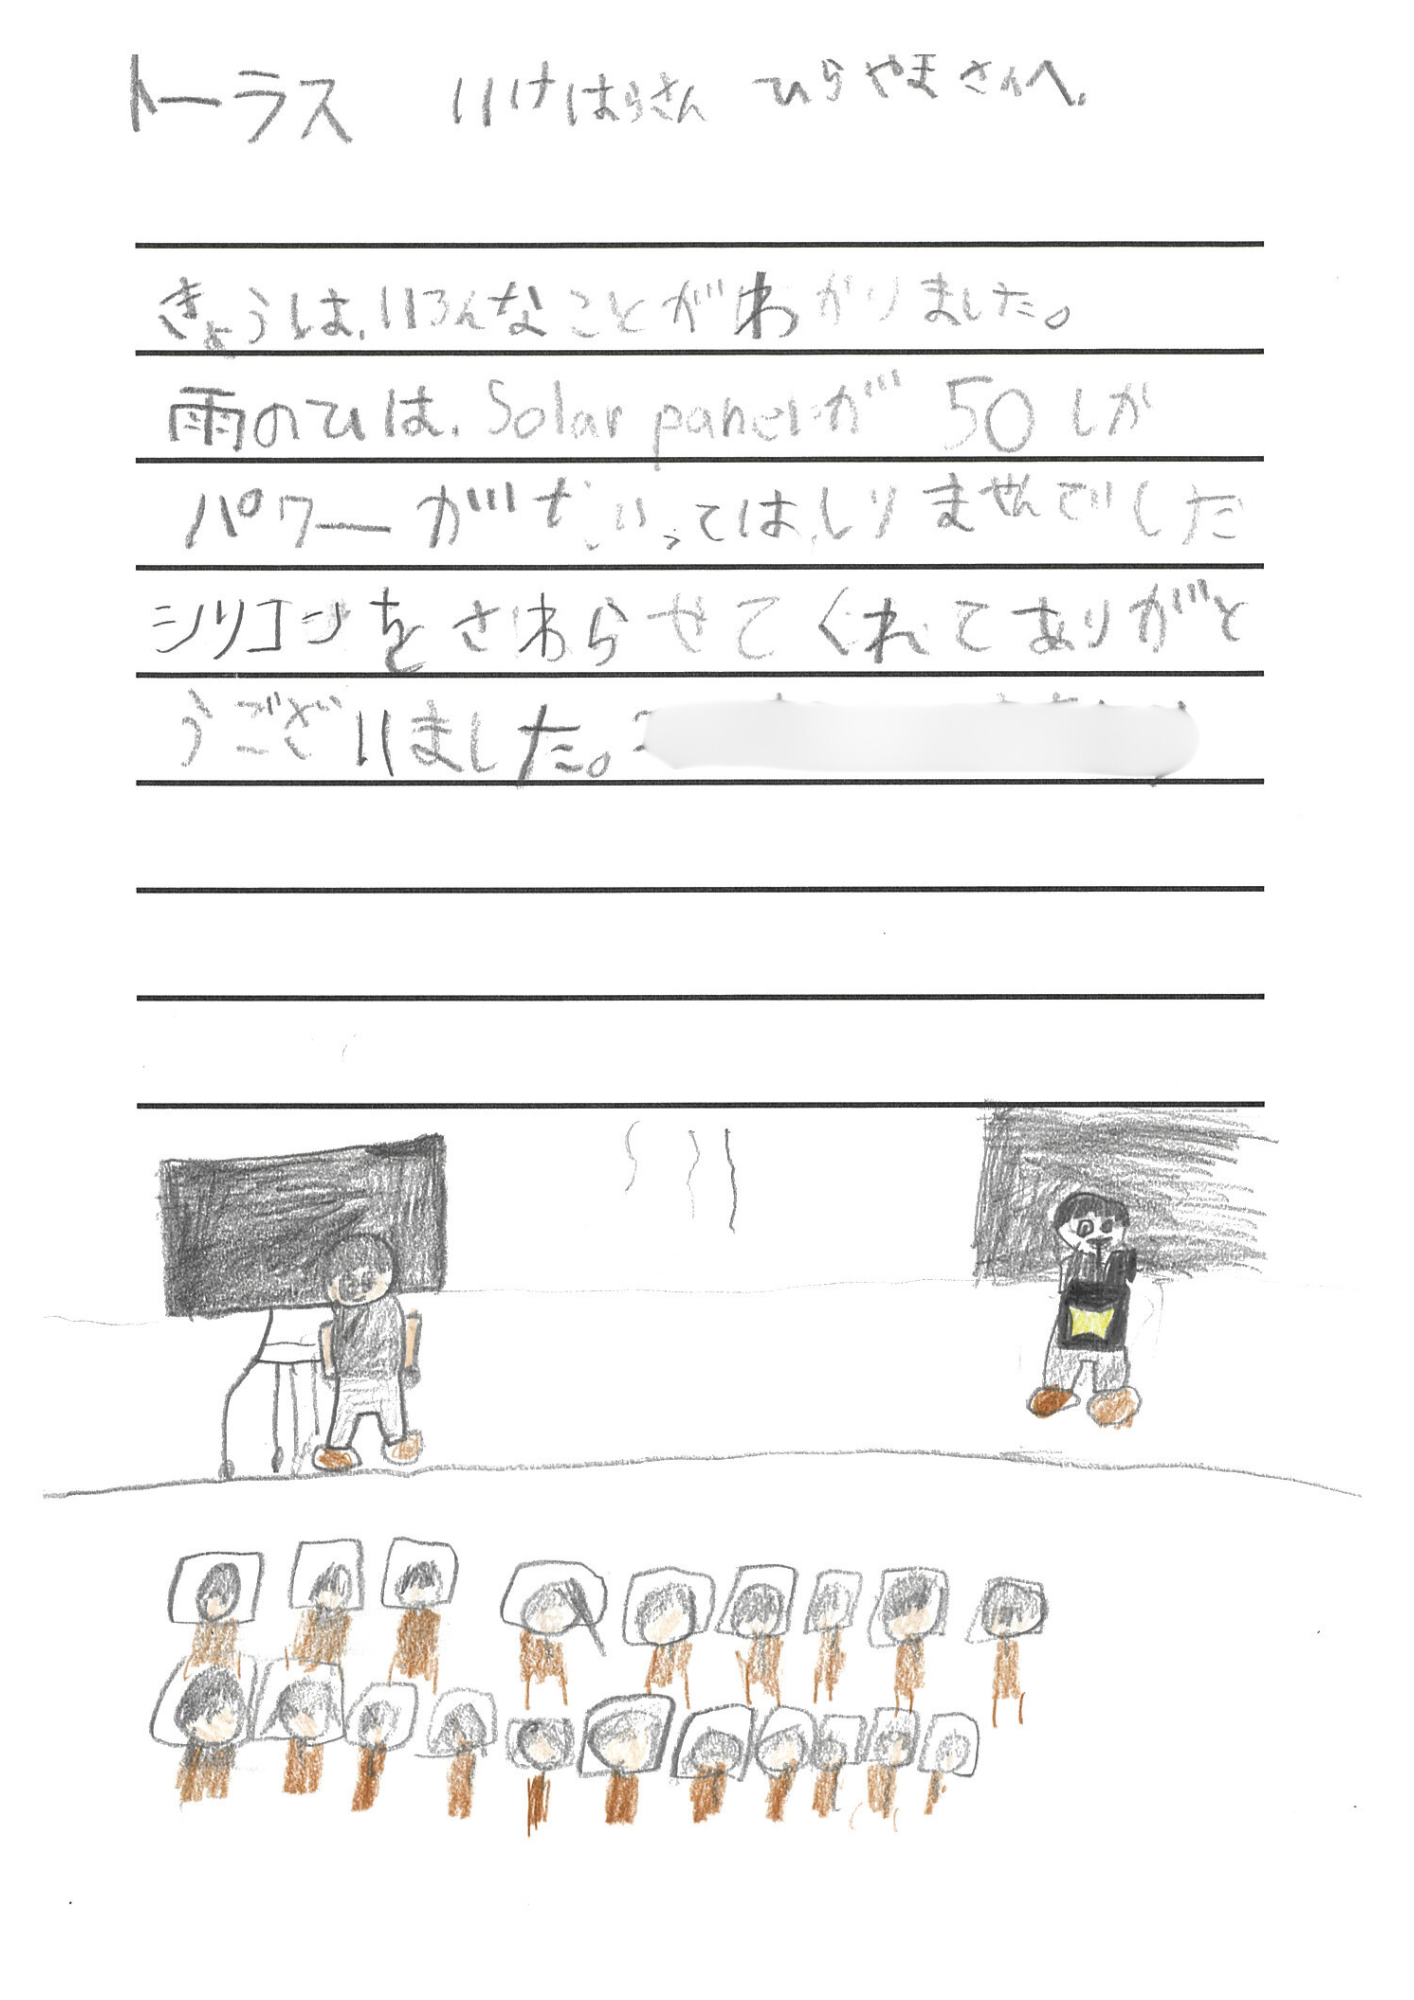 トーラス いけはらさん ひらやまさんへ。
きょうは、いろんなことがわかりました。
雨のひは、Solar panelが 50 しか
パワーが だいってはしりませんでした
シリコンをさわらせてくれてありがと
うございました。